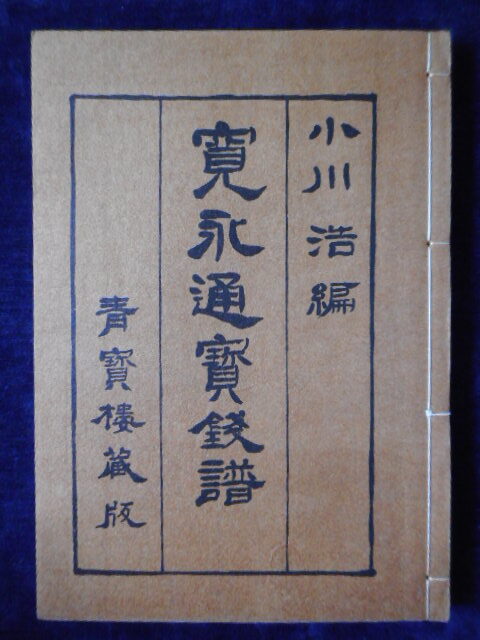 小川浩編
寛永通寳錢譜
青寳樓藏版